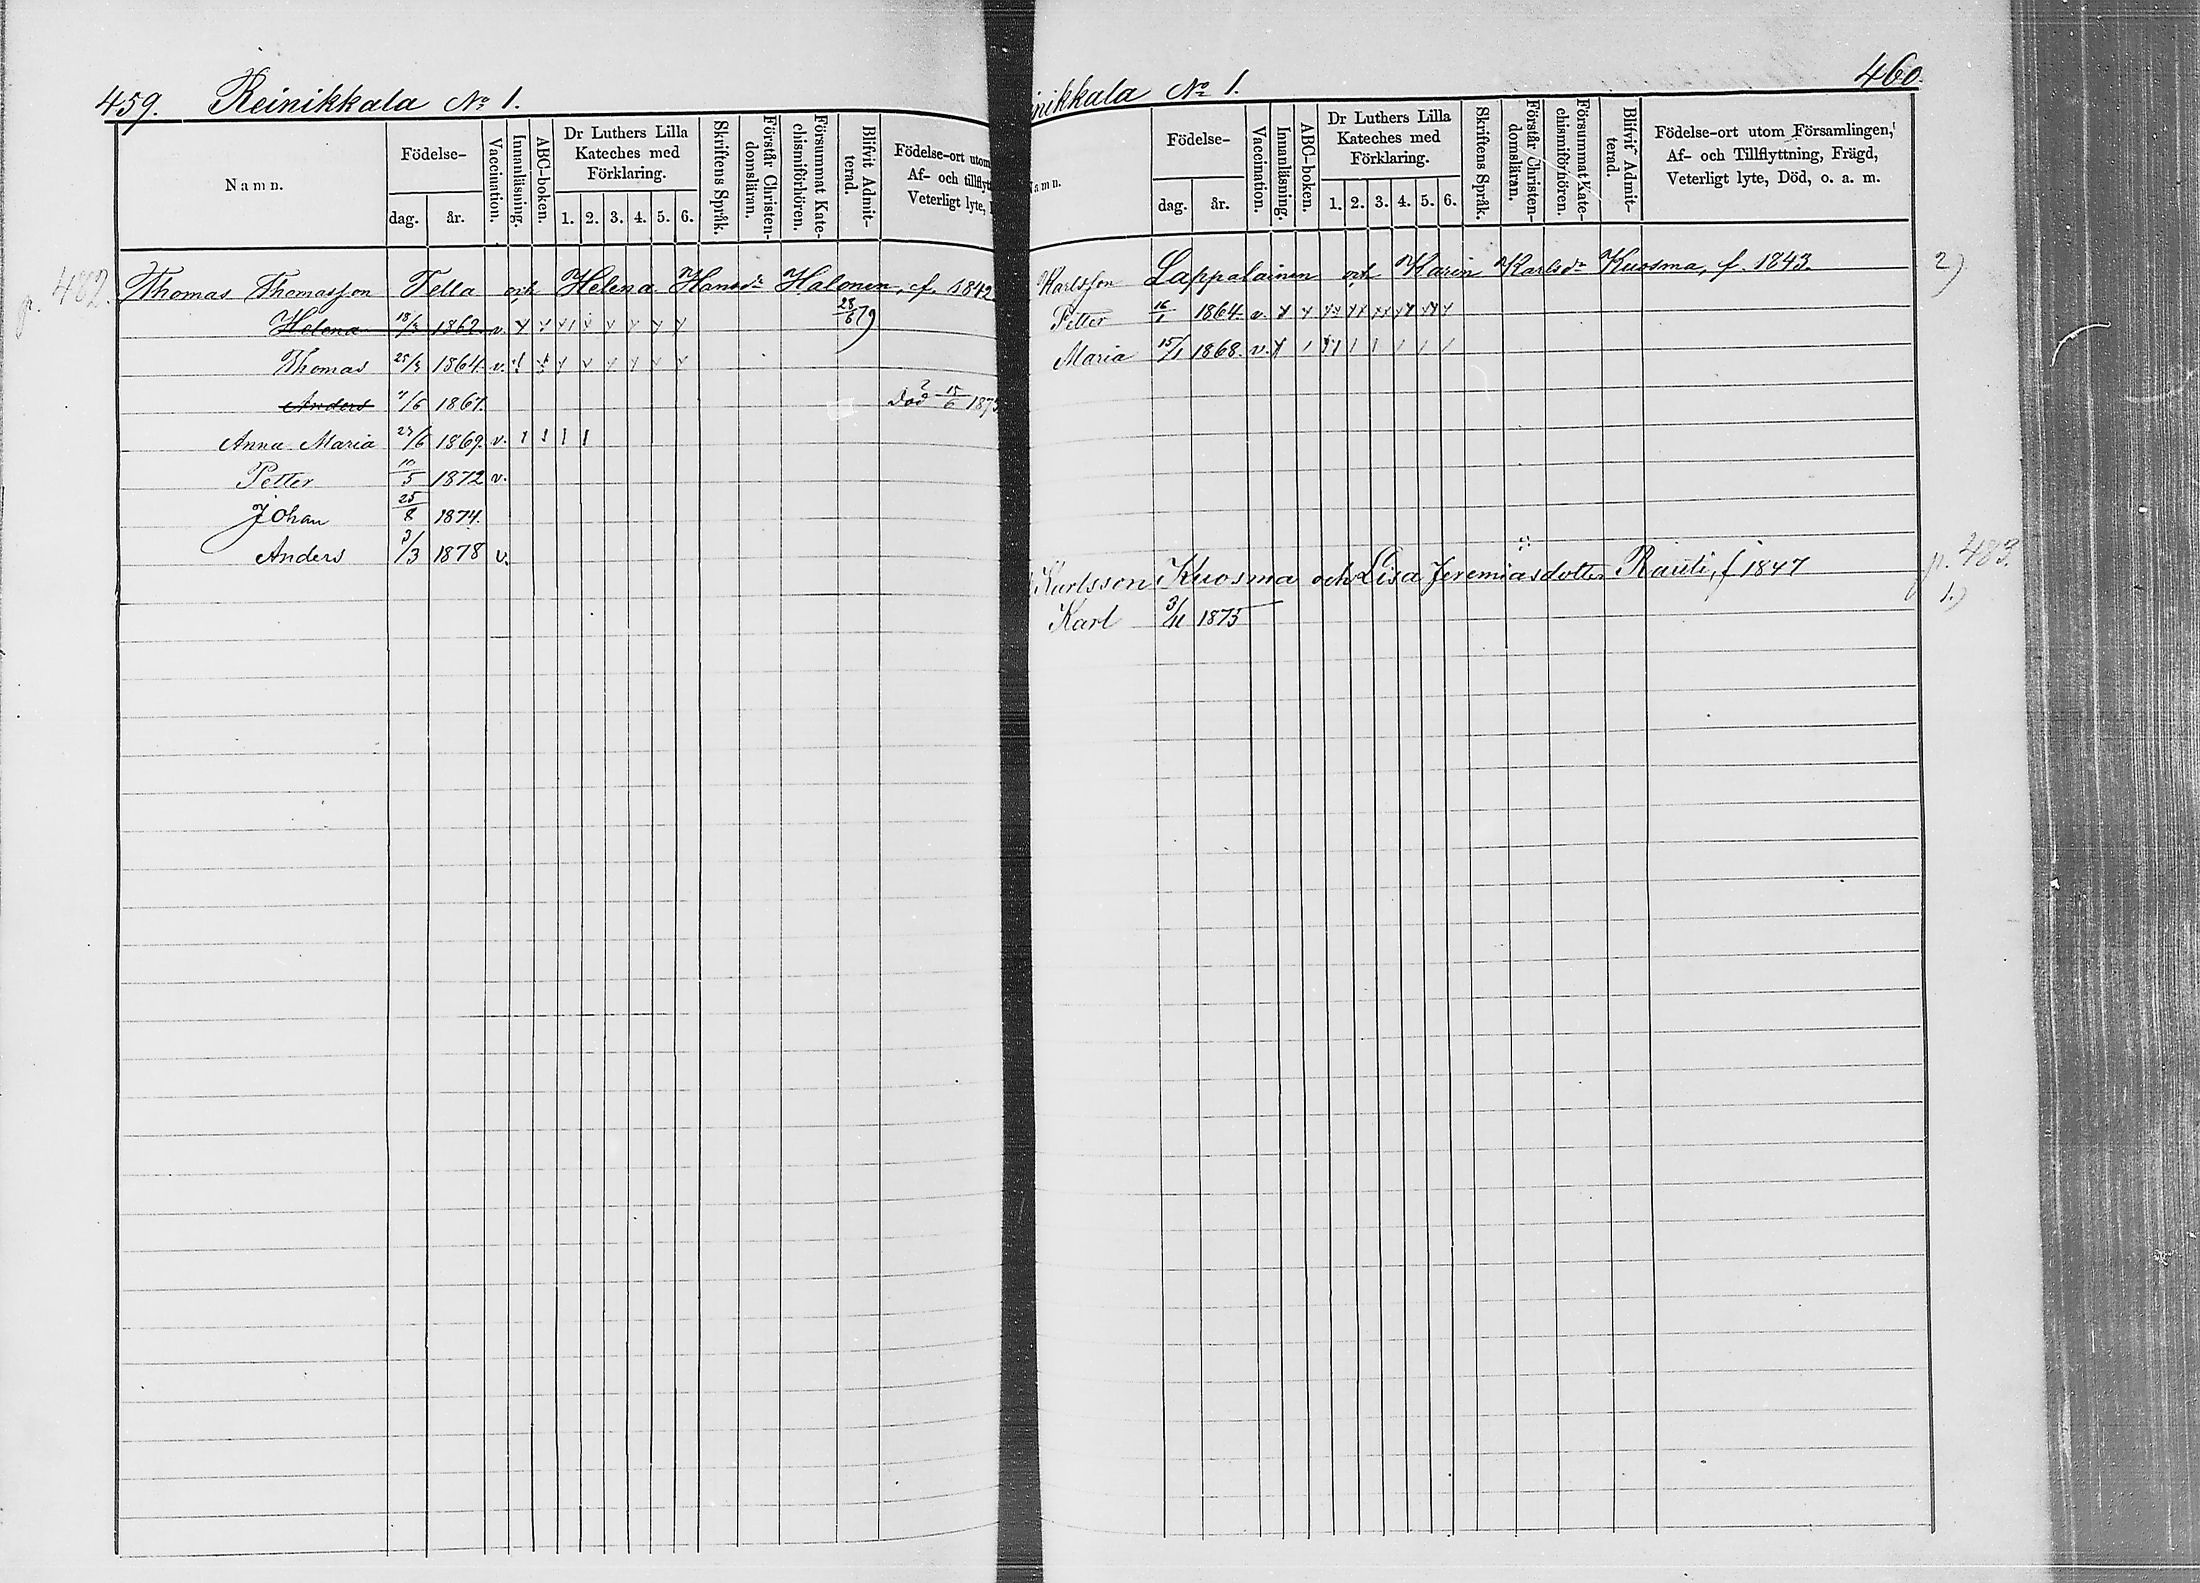 459. Reinikkala No 1.
Namn.
Födelse-
dag.
år.
Vaccination.
Innanläsning.
ABC-boken.
Dr Luthers Lilla
Kateches med
Förklaring.
1. 2. 3. 4. 5. 6.
Skriftens Språk.
Förstår Christen-
domsläran.
Försummat Kate-
chismiförhören.
Blifvit Admit-
terad.
Födelse-ort utom
Af- och tillflytt
Veterligt lyte,
p. 482.
Thomas Thomasson Tella och Helena Hansdr Halonen, f. 1842
Helena 18/3 1862. v. 28/6 79
Thomas 25/3 1864. v.
Anders 1867. Död 15/6 187
Anna Maria 1869. v. 1 1 1 1
Petter 10/5 1872 v.
Johan 25/8 1874.
Anders 3/3 1878 v.
nikkala No 1.
460.
amn.
Födelse-
dag.
år.
Vaccination.
Innanläsning.
ABC-boken.
Dr Luthers Lilla
Kateches med
Förklaring.
1. 2. 3. 4. 5. 6.
Skriftens Språk.
Förstår Christen-
domsläran.
Försummat Kate-
chismiförhören.
Blifvit Admit-
terad.
Födelse-ort utom Församlingen,
Af- och Tillflyttning, Frägd,
Veterligt lyte, Död, o. a. m.
Karlsson Lappalainen och Karin Karlsdr Kuosma, f. 1843. 2)
Petter 16/1 1864. v.
Maria 15/1 1868. v.
Karlsson Kuosma och Lisa Jeremiasdotter Rauti, f 1847 p. 483.
1.)
Karl 3/11 1875